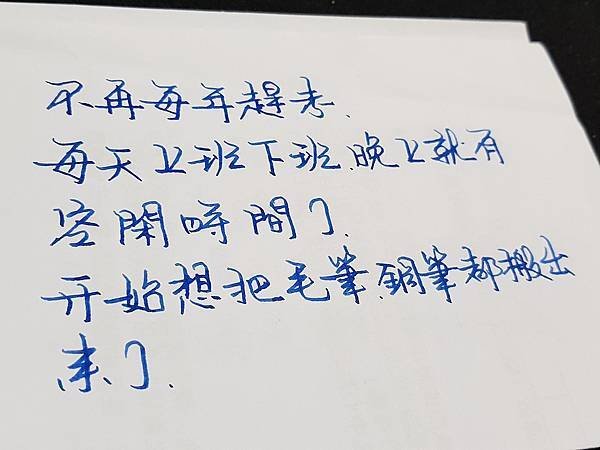 不再每年趕考.
每天上班下班.晚上就有
空閑時間了.
开始想把毛筆.鋼筆都搬出
來了.